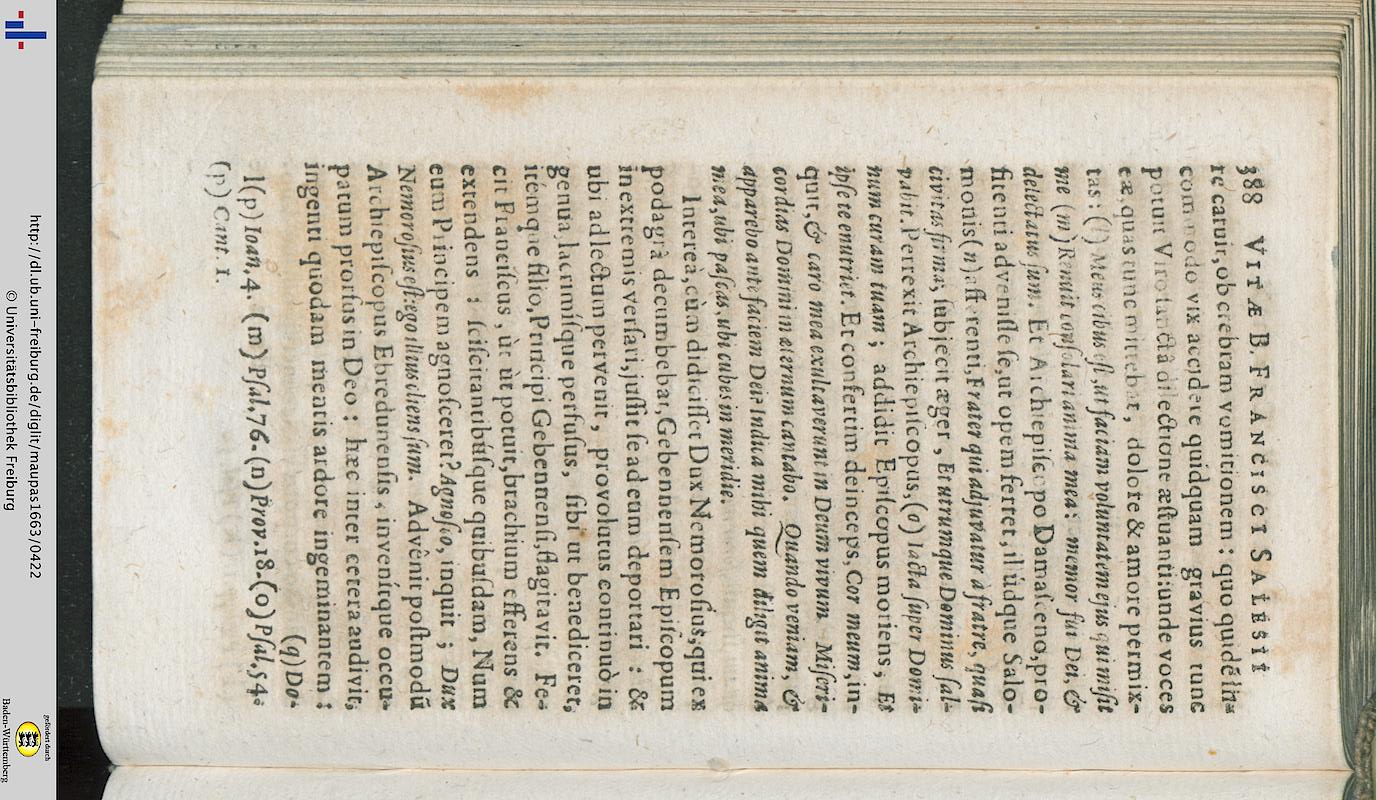 388 VITÆ B. FRANCISCI SALESII
re cavit, ob crebram vomitionem: quo quidē in-
commodo vix accidere quidquam gravius tunc
potuit Viro tanta dilectione æstuanti: unde voces
eæ, quas tunc mittebat, dolore & amore permix-
tas: (l) Meus cibus est, ut faciam voluntatem ejus qui misit
me (m) Renuit consolari anima mea: memor fui Dei, &
delectatus sum. Et Archiepiscopo Damasceno, pro-
fitenti advenisse se, ut opem ferret, illúdque Salo-
monis (n) afferenti, Frater qui adjuvatur à fratre, quasi
civitas firma, subjecit æger, Et utrumque Dominus sal-
vabit. Perrexit Archiepiscopus, (o) Iacta super Domi-
num curam tuam; addidit Episcopus moriens, Et
ipse te enutriet. Et confertim deinceps, Cor meum, in-
quit, & caro mea exultaverunt in Deum vivum. Miseri-
cordias Domini in æternum cantabo. Quando veniam, &
apparebo ante faciem Dei? Indica mihi quem diligit anima
mea, ubi pascas, ubi cubes in meridie.
Interea, cùm didicisset Dux Nemorosius, qui ex
podagrâ decumbebat, Gebennensem Episcopum
in extremis versari, jussit se ad eum deportari: &
ubi ad lectum pervenit, provolutus continuò in
genua, lacrimísque perfusus, sibi ut benediceret,
itémque filio, Principi Gebennensi, flagitavit. Fe-
cit Franciscus, ùt ùt potuit, brachium efferens &
extendens: sciscitantibúsque quibusdam, Num
eum Principem agnosceret? Agnosco, inquit; Dux
Nemorosius est: ego illius cliens sum. Advênit postmodū
Archiepiscopus Ebredunensis, invenítque occu-
patum prorsus in Deo: hæc inter cetera audivit,
ingenti quodam mentis ardore ingeminantem:
(q) Do-
l(p) Ioan, 4. (m) Psal. 76. (n) Prov. 18. (o) Psal. 54.
(p) Cant. 1.
http://dl.ub.uni-freiburg.de/diglit/maupas1663/0422
© Universitätsbibliothek Freiburg
gefördert durch
Baden-Württemberg